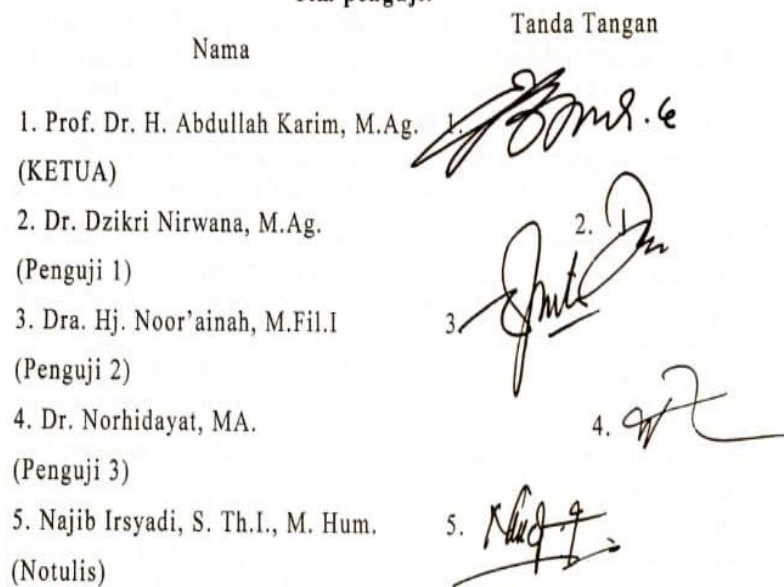 Tanda Tangan
Nama
1. Prof. Dr. H. Abdullah Karim, M.Ag. 1.
(KETUA)
2. Dr. Dzikri Nirwana, M.Ag. 2.
(Penguji 1)
3. Dra. Hj. Noor’ainah, M.Fil.I 3.
(Penguji 2)
4. Dr. Norhidayat, MA. 4.
(Penguji 3)
5. Najib Irsyadi, S. Th.I., M. Hum. 5.
(Notulis)